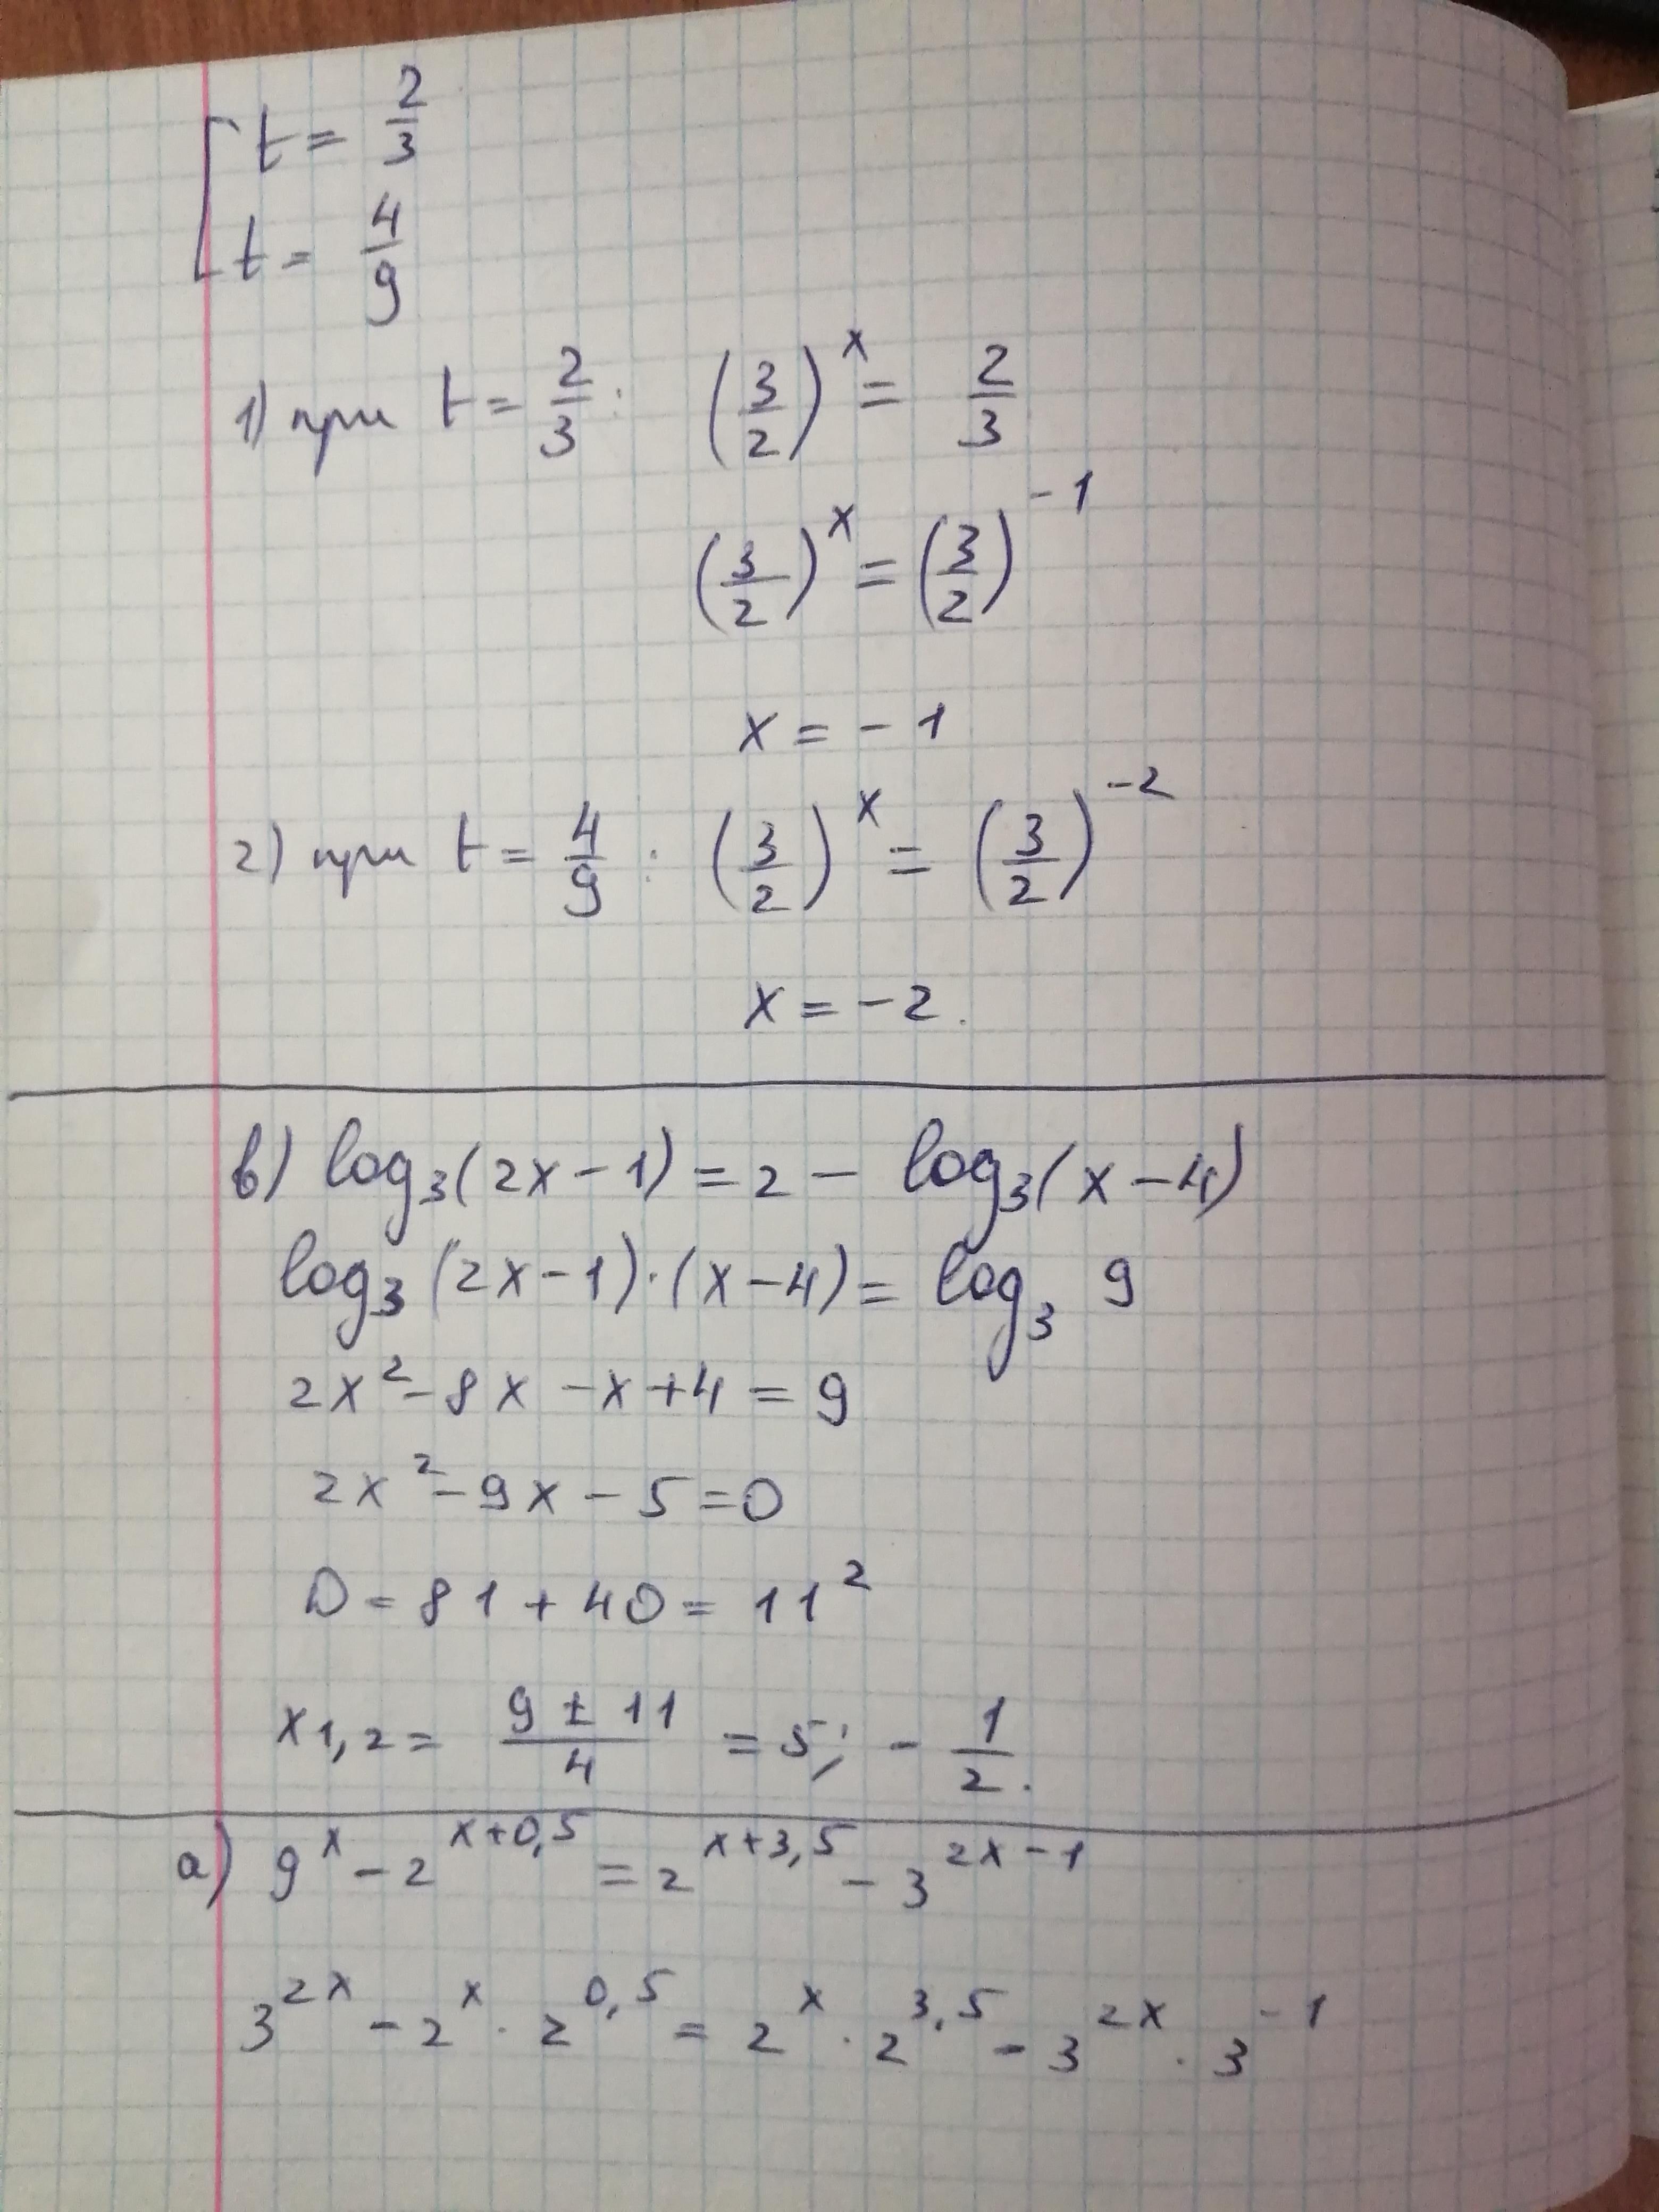 t = 2/3
t = 4/9
1) при t = 2/3 : (3/2)^x = 2/3
(3/2)^x = (3/2)^-1
x = -1
2) при t = 4/9 : (3/2)^x = (3/2)^-2
x = -2.
в) log₃(2x-1) = 2 - log₃(x-4)
log₃(2x-1)·(x-4) = log₃ 9
2x² - 8x - x + 4 = 9
2x² - 9x - 5 = 0
D = 81 + 40 = 11²
x1,2 = (9 ± 11)/4 = 5; - 1/2.
a) 9^x - 2^(x+0,5) = 2^(x+3,5) - 3^(2x-1)
3^2x - 2^x · 2^0,5 = 2^x · 2^3,5 - 3^2x · 3^-1